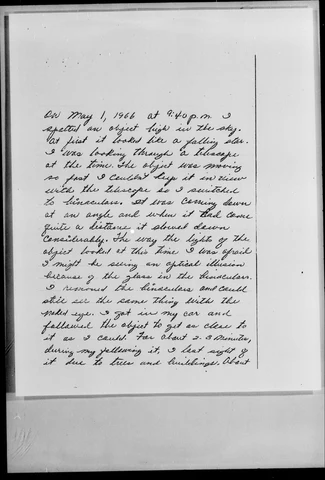 On May 1, 1966 at 9:40 p.m. I
spotted an object high in the sky.
At first it looked like a falling star.
I was looking through a telescope
at the time. The object was moving
so fast I couldn't keep it in view
with the telescope so I switched
to binoculars. It was coming down
at an angle and when it had come
quite a distance it slowed down
considerably. The way the lights of the
object looked at this time I was afraid
I might be seeing an optical illusion
because of the glass in the binoculars.
I removed the binoculars and could
still see the same thing with the
naked eye. I got in my car and
followed the object to get as close to
it as I could. For about 2-3 minutes,
during my following it, I lost sight of
it due to trees and buildings. About